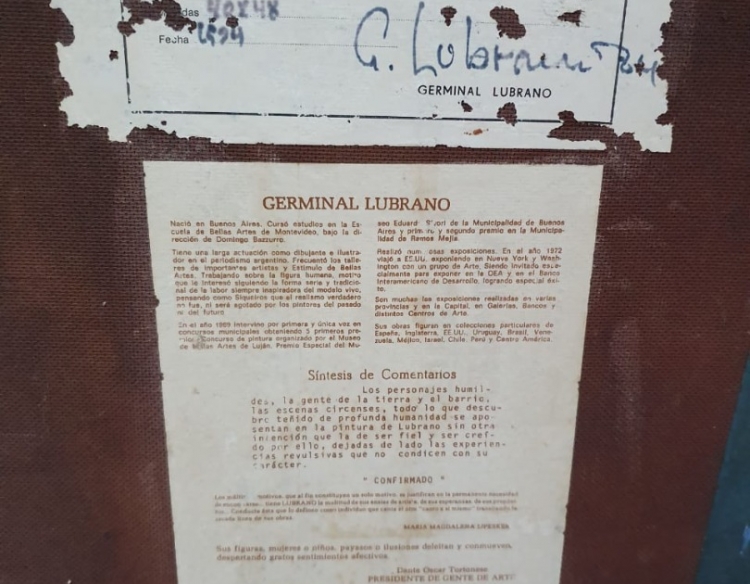 das 40x48
Fecha
G. Lubrano
GERMINAL LUBRANO
GERMINAL LUBRANO
Nació en Buenos Aires. Cursó estudios en la Es
cuela de Bellas Artes de Montevideo, bajo la di-
rección de Domingo Bazzurro.
Tiene una larga actuación como dibujante e ilustra-
dor en el periodismo argentino. Frecuentó los talle-
res de importantes artistas y Estímulo de Bellas
Artes. Trabajando sobre la figura humana, motivo
que le interesó siguiendo la forma seria y tradicio-
nal de la labor siempre inspiradora del modelo vivo,
pensando como Siqueiros que el realismo verdadero
fue, ni será agotado por los pintores del pasado
ni del futuro
En el año 1969 intervino por primera y única vez en
concursos municipales obteniendo 5 primeros pre-
Concurso de pintura organizado por el Museo
de Bellas Artes de Luján, Premio Especial del Mu-
seo Eduard de la Municipalidad de Buenos
Aires y primero y segundo premio en la Municipa-
lidad de Ramos Mejía.
Realizó exposiciones. En el año 1972
viajó a EE.UU. exponiendo en Nueva York y Wash-
ington con un grupo de Arte. Siendo invitado espe-
cialmente para exponer en la OEA y en el Banco
Interamericano de Desarrollo, logrando especial éxi-
to.
Son muchas las exposiciones realizadas en varias
provincias y en la Capital, en Galerías, Bancos y
distintos Centros de Arte.
Sus obras figuran en colecciones particulares de
España, Inglaterra, EE.UU., Uruguay, Brasil, Vene-
zuela, Méjico, Israel, Chile, Perú y Centro América.
Síntesis de Comentarios
Los personajes humil-
des, la gente de la tierra y el barrio,
las escenas circenses, todo lo que descu-
bre teñido de profunda humanidad se apo-
sentan en la pintura de Lubrano sin otra
intención que la de ser fiel y ser creí-
do por ello, dejadas de lado las experien-
cias revulsivas que no condicen con su
carácter.
" CONFIRMADO "
que al fin constituyen un solo motivo, se justifican en la permanente necesidad
LUBRANO la multitud de sus ansias de artista, de sus esperanzas
obras
MARIA MAGDALENA
Sus figuras, mujeres o niños, payasos o ilusiones deleitan y conmueven,
despertando gratos sentimientos afectivos.
Dante Oscar Tortonese
PRESIDENTE DE GENTE DE ARTE